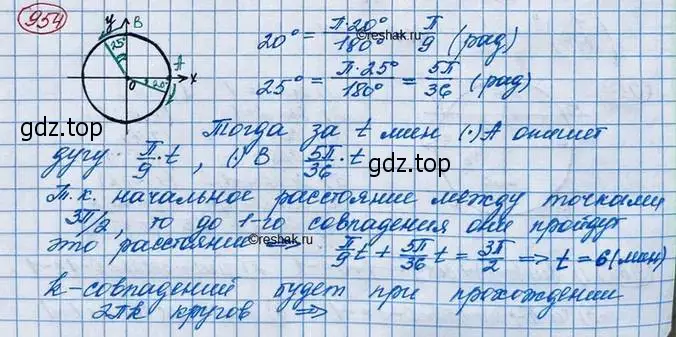 954
y B
25° A
O 20° x
20° = π·20°/180° = π/9 (рад)
25° = π·25°/180° = 5π/36 (рад)
gdz.top
Тогда за t мин (·)A опишет
дугу π/9·t, (·)B 5π/36·t
gdz.top
Т.к. начальное расстояние между точками
3π/2, то до 1-го совпадения они пройдут
это расстояние ⇒ π/9 t + 5π/36 t = 3π/2 ⇒ t = 6 (мин)
k-совпадений будет при прохождении
2πk кругов ⇒